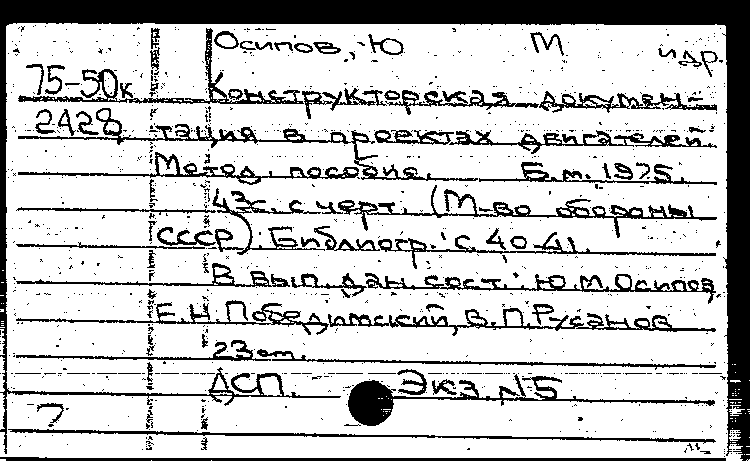 Осипов, Ю М и др.
75-50к Конструкторская докумен-
2428 тация в проектах двигателей.
Метод. пособие. Б.м. 1975.
43с. с черт. (М-во обороны
СССР). Библиогр.: с. 40-41.
В вып. дан. сост.: Ю.М.Осипов,
Е.Н.Победимский, В.П.Русанов
23 см.
ДСП. Экз. №5
7